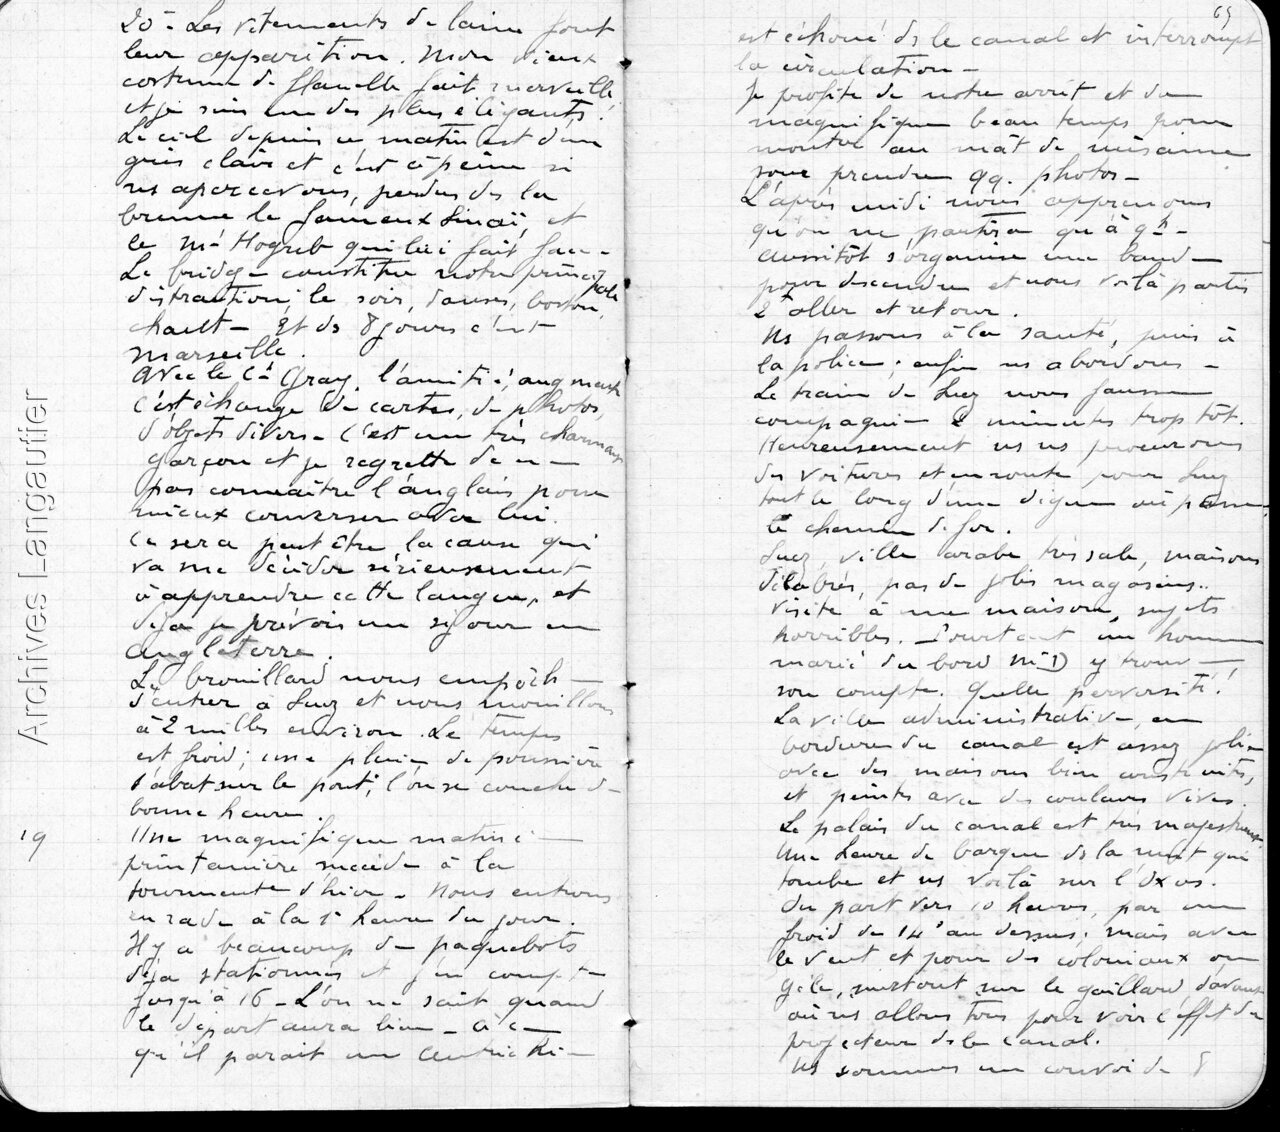 20° - Les vêtements de laine font
leur apparition. Mon vieux
costume de flanelle fait merveille
et je suis un des plus élégants.
Le ciel depuis ce matin est d'un
gris clair et c'est à peine si
ns apercevons, perdus ds la
brume le fameux Sinaï, et
le Mt Hogreb qui lui fait face -
Le bridge constitue notre principale
distraction; le soir, danses, boston,
chahut - Et ds 8 jours c'est
Marseille.
Avec le Ct Gray, l'amitié augmente
c'est échange de cartes, de photos,
d'objets divers - C'est un très charmant
garçon et je regrette de ne
pas connaître l'anglais pour
mieux converser avec lui.
Ce sera peut être la cause qui
va me décider sérieusement
à apprendre cette langue, et
déjà je prévois un séjour en
Angleterre.
Le brouillard nous empêche
d'entrer à Suez et nous mouillons
à 2 milles environ. Le temps
est froid; une pluie de poussière
s'abat sur le pont; l'on se couche de
bonne heure.
19
Une magnifique matinée
printanière succède à la
tourmente d'hier - Nous entrons
en rade à la 1e heure du jour.
Il y a beaucoup de paquebots
déjà stationnés et j'en compte
jusqu'à 16 - L'on ne sait quand
le départ aura lieu - à ce
qu'il parait un Autrichien
65
est échoué ds le canal et interrompt
la circulation -
Je profite de notre arrêt et du
magnifique beau temps pour
monter au mât de misaine
pour prendre qq. photos -
L'après midi nous apprenons
qu'on ne partira qu'à 9h -
aussitôt s'organise une bande
pour descendre et nous voilà partis
2f aller et retour.
Ns passons à la santé, puis à
la police; enfin ns abordons -
Le train de Suez nous fausse
compagnie 2 minutes trop tôt.
Heureusement ns ns procurons
des voitures et en route pour Suez
tout le long d'une digue où passe
le chemin de fer.
Suez, ville arabe très sale, maisons
délabrés, pas de jolis magasins..
Visite à une maison, sujets
horribles. Pourtant un homme
marié du bord Mr D y trouve
son compte. Quelle perversité!
La ville administrative, en
bordure du canal est assez jolie
avec des maisons bien construites,
et peintes avec des couleurs vives.
Le palais du canal est très majestueux
Une heure de barque ds la nuit qui
tombe et ns voilà sur l'Oxus.
On part vers 10 heures, par un
froid de 14° au dessus; mais avec
le vent et pour des coloniaux on
gèle, surtout sur le gaillard d'avant
où ns allons tous pour voir l'effet du
projecteur ds le canal.
Ns sommes un convoi de 8
Archives Langautier